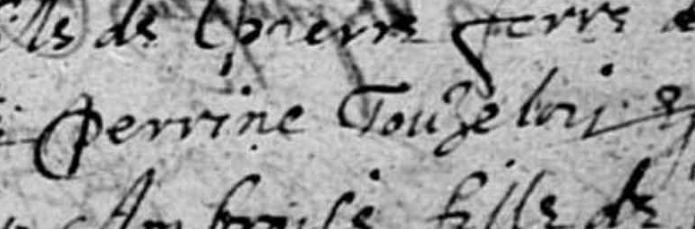 fills de pierre ferre
perrine Touzelon
Ambroise fille de